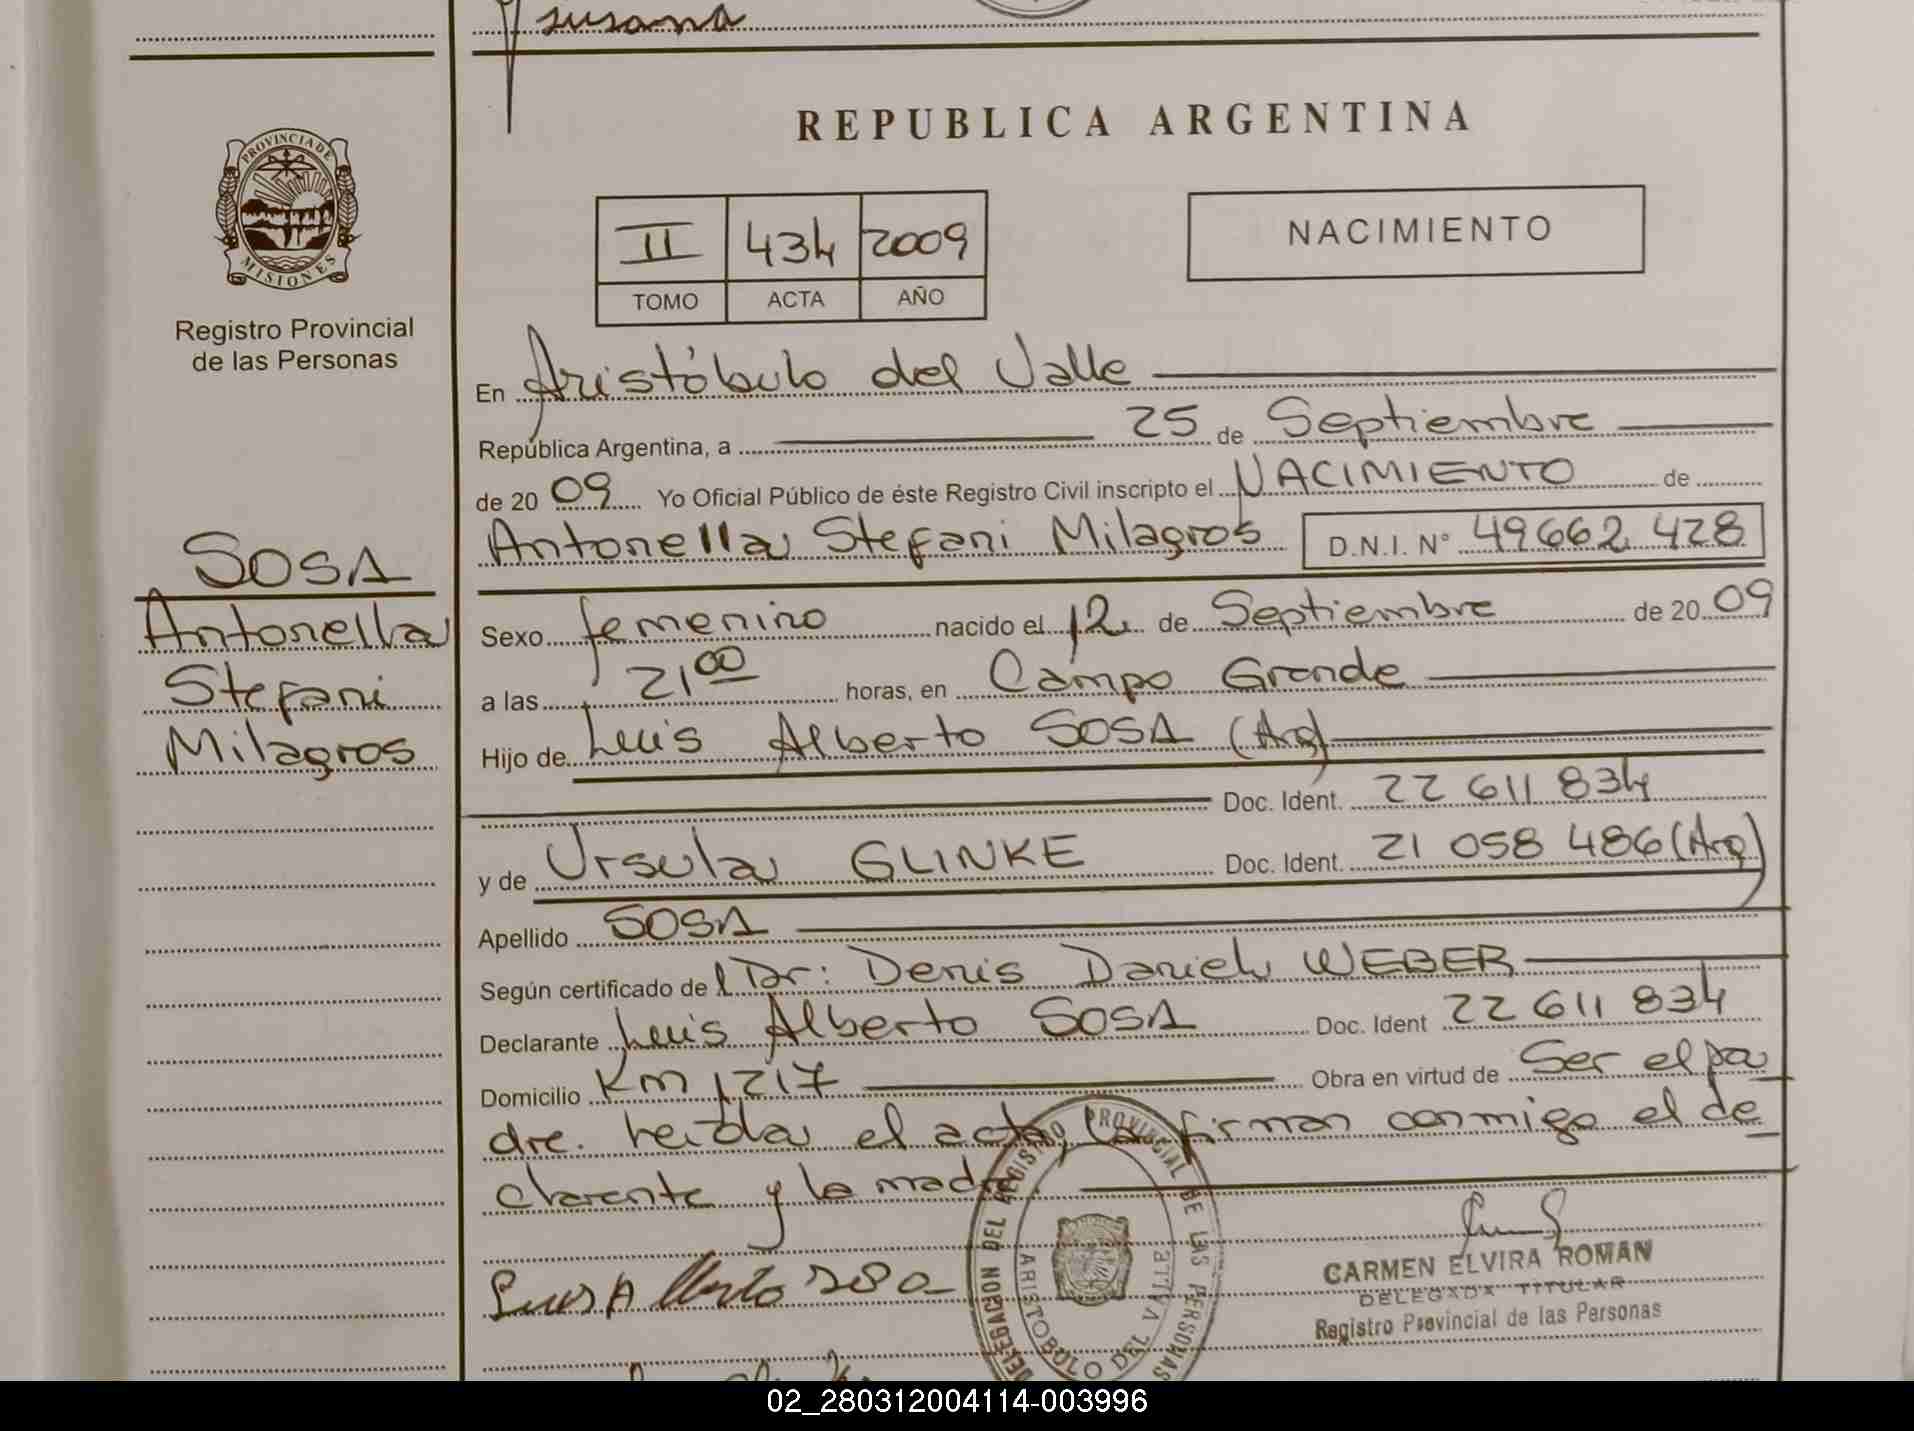 susana
PROVINCIA DE
MISIONES
Registro Provincial
de las Personas
SOSA
Antonella
Stefani
Milagros
REPUBLICA ARGENTINA
II 434 2009
TOMO ACTA AÑO
NACIMIENTO
En Aristóbulo del Valle
República Argentina, a 25 de Septiembre
de 20 09 Yo Oficial Público de éste Registro Civil inscripto el NACIMIENTO de
Antonella Stefani Milagros D.N.I. N° 49662 428
Sexo femenino nacido el 12 de Septiembre de 20 09
a las 21 00 horas, en Campo Grande
Hijo de Luis Alberto SOSA (Arg)
Doc. Ident. 22 611 834
y de Ursula GLINKE Doc. Ident. 21 058 486 (Arg)
Apellido SOSA
Según certificado del Dr: Denis Daniel WEBER
Declarante Luis Alberto SOSA Doc. Ident 22 611 834
Domicilio Km 1217 Obra en virtud de Ser el pa
dre. Leída el acta, la firman conmigo el de
clarante y la madre.
Luis Alberto Sosa
DELEGACION DEL REGISTRO PROVINCIAL DE LAS PERSONAS
ARISTOBULO DEL VALLE
CARMEN ELVIRA ROMAN
DELEGADA TITULAR
Registro Provincial de las Personas
02_280312004114-003996